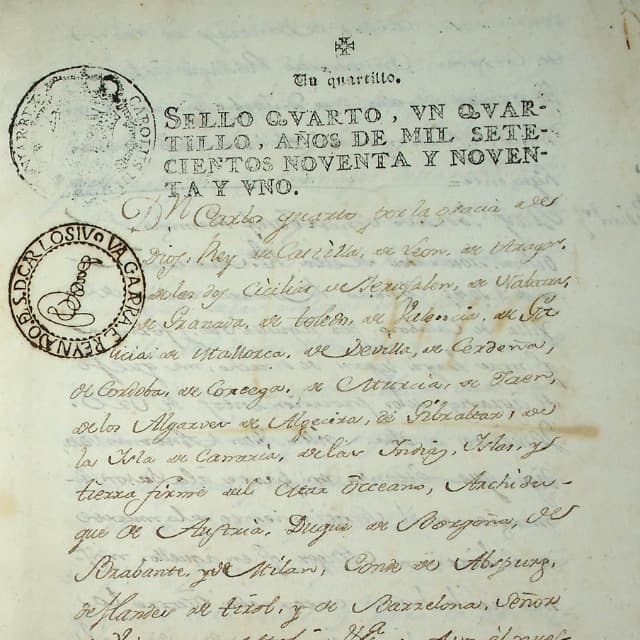 Un quartillo.
SELLO QVARTO, VN QVAR-
TILLO, AÑOS DE MIL SETE-
CIENTOS NOVENTA Y NOVEN-
TA Y VNO.
Dn Carlos quarto por la gracia de
Dios, Rey de Castilla, de Leon, de Aragon,
de las dos Cicilias de Jerusalen, de Nabarra,
de Granada, de Toledo, de Valencia, de Ga
licia, de Mallorca, de Sevilla, de Cerdeña,
de Cordoba, de Corcega, de Murcia, de Jaen,
de los Algarves de Algecira, de Gibraltar, de
la Isla de Canaria, de las Indias, Islas, y
tierra firme del Mar Occeano, Archidu-
que de Austria, Duque de Borgoña, de
Brabante, y de Milan, Conde de Abspurg,
de Flandes de tirol, y de Barzelona, Señor